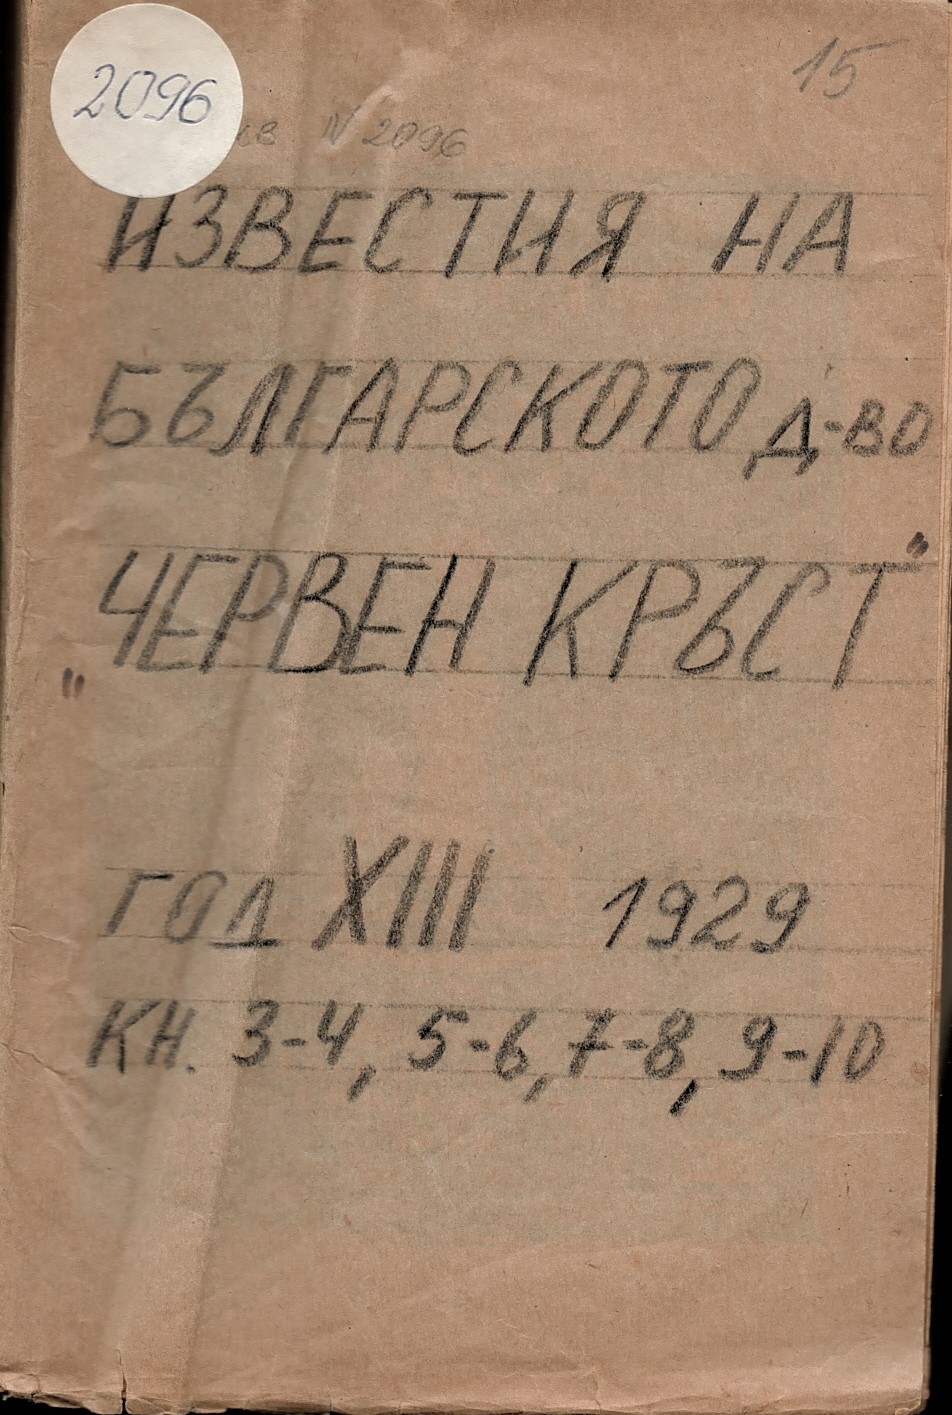 2096
15
N 2096
ИЗВЕСТИЯ НА
БЪЛГАРСКОТО Д-ВО
„ЧЕРВЕН КРЪСТ"
ГОД XIII 1929
КН. 3-4, 5-6, 7-8, 9-10